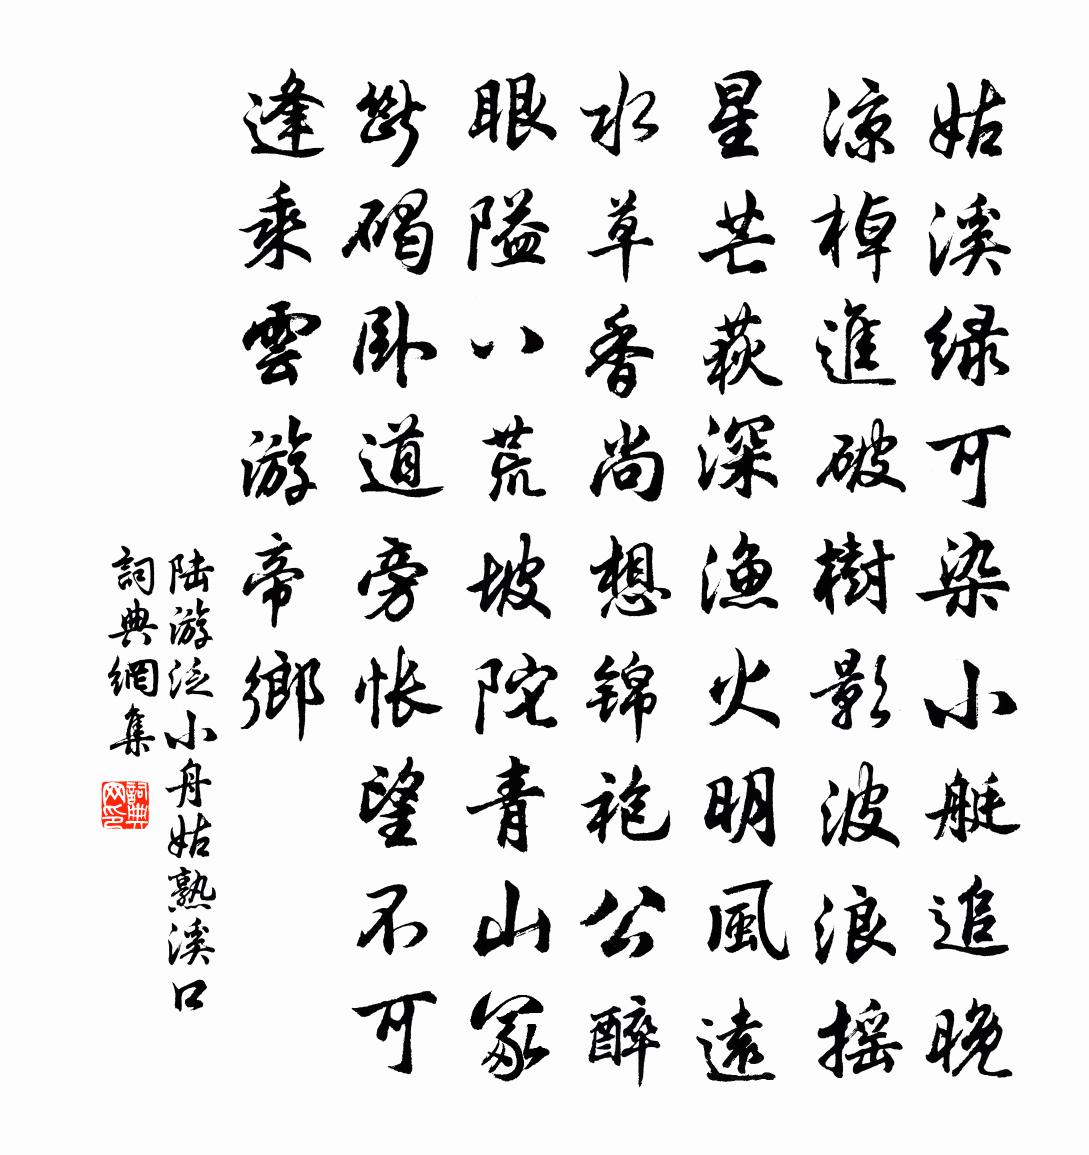 姑溪綠可染小艇追晚
涼棹進破樹影波浪搖
星芒荻深漁火明風遠
水草香尚想錦袍公醉
眼隘八荒坡陀青山冢
斷碣臥道旁悵望不可
逢乘雲游帝鄉
陆游泛小舟姑熟溪口
詞典網集
詞典网印